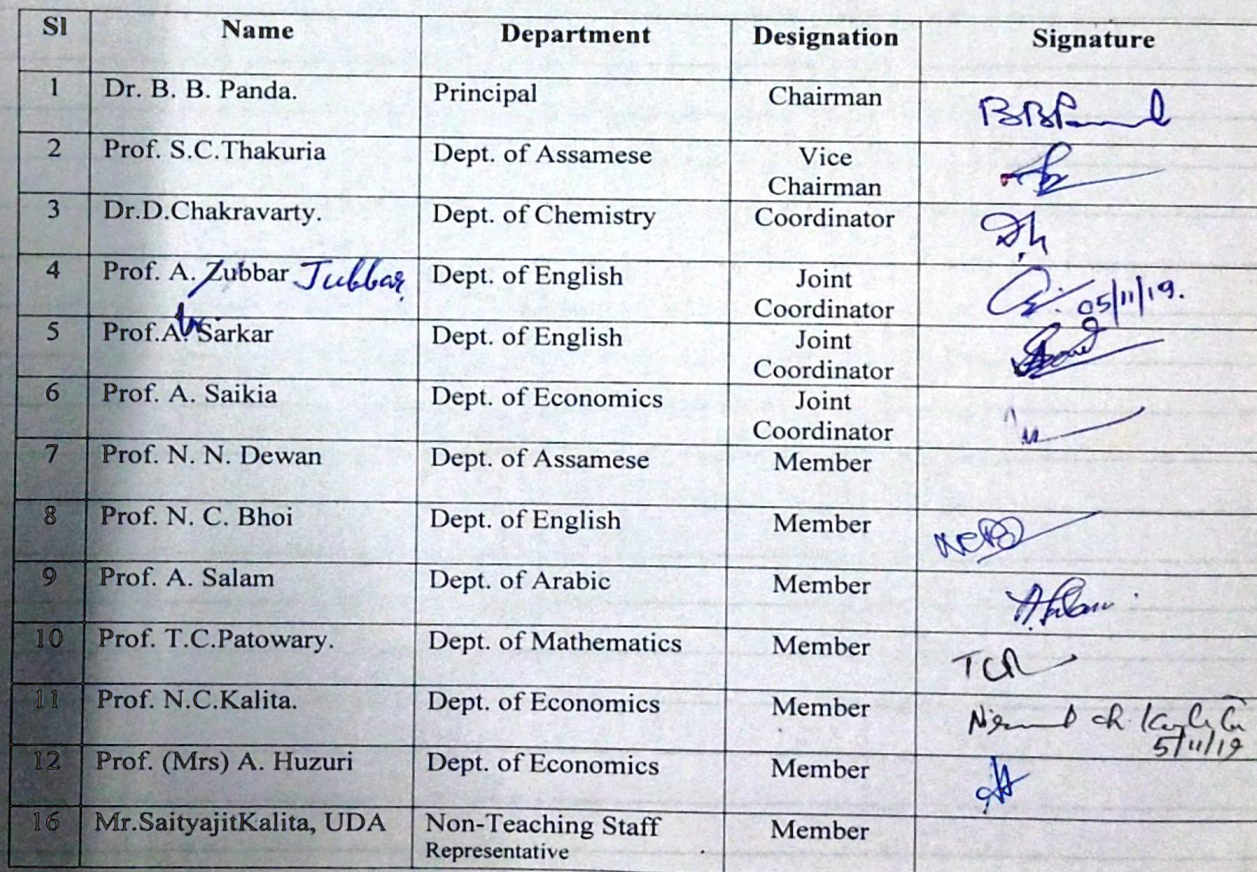 Sl Name Department Designation Signature
1 Dr. B. B. Panda. Principal Chairman
2 Prof. S.C.Thakuria Dept. of Assamese Vice
Chairman
3 Dr.D.Chakravarty. Dept. of Chemistry Coordinator
4 Prof. A. Zubbar Jubbar Dept. of English Joint
Coordinator 05/11/19.
5 Prof.A. Sarkar Dept. of English Joint
Coordinator
6 Prof. A. Saikia Dept. of Economics Joint
Coordinator
7 Prof. N. N. Dewan Dept. of Assamese Member
8 Prof. N. C. Bhoi Dept. of English Member
9 Prof. A. Salam Dept. of Arabic Member
10 Prof. T.C.Patowary. Dept. of Mathematics Member
11 Prof. N.C.Kalita. Dept. of Economics Member
5/11/19
12 Prof. (Mrs) A. Huzuri Dept. of Economics Member
16 Mr.SaityajitKalita, UDA Non-Teaching Staff Member
Representative